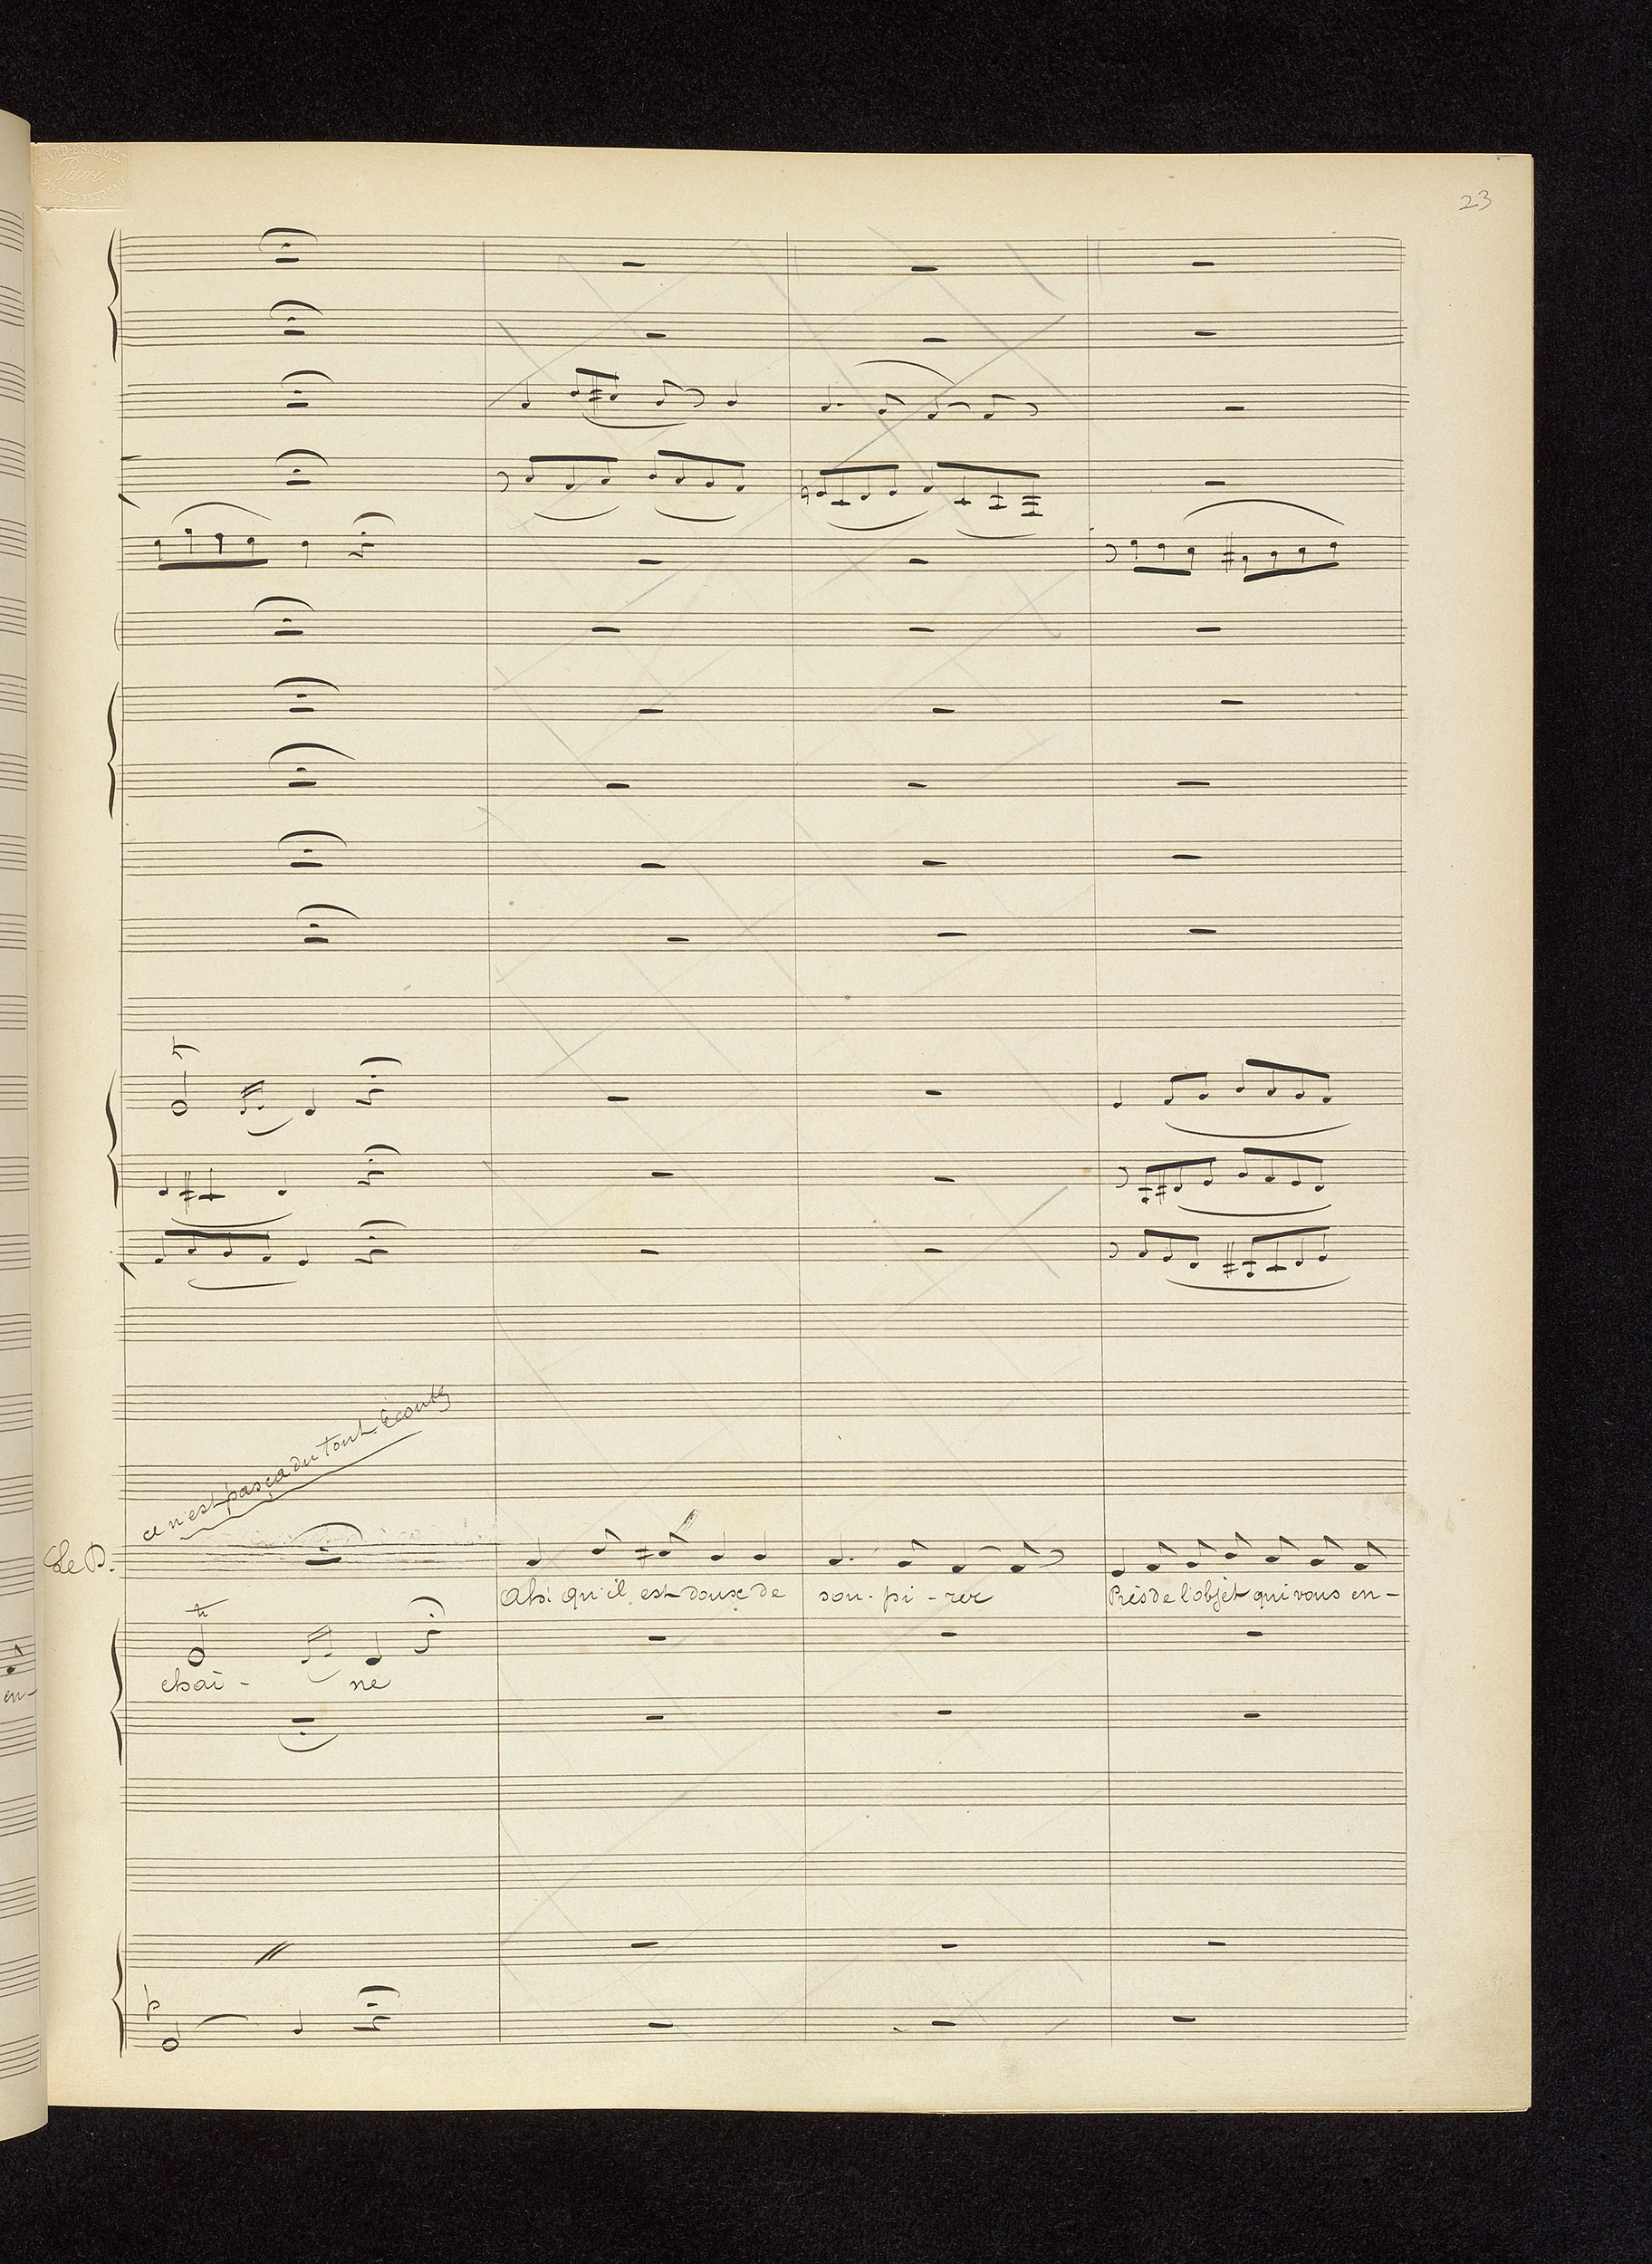 23
Paris
ce n'est pas ça du tout Ecoutez
Le P.
Ah! qu'il est doux de sou-pi-rer Près de l'objet qui vous en-
tr
chai- ne
en-
p